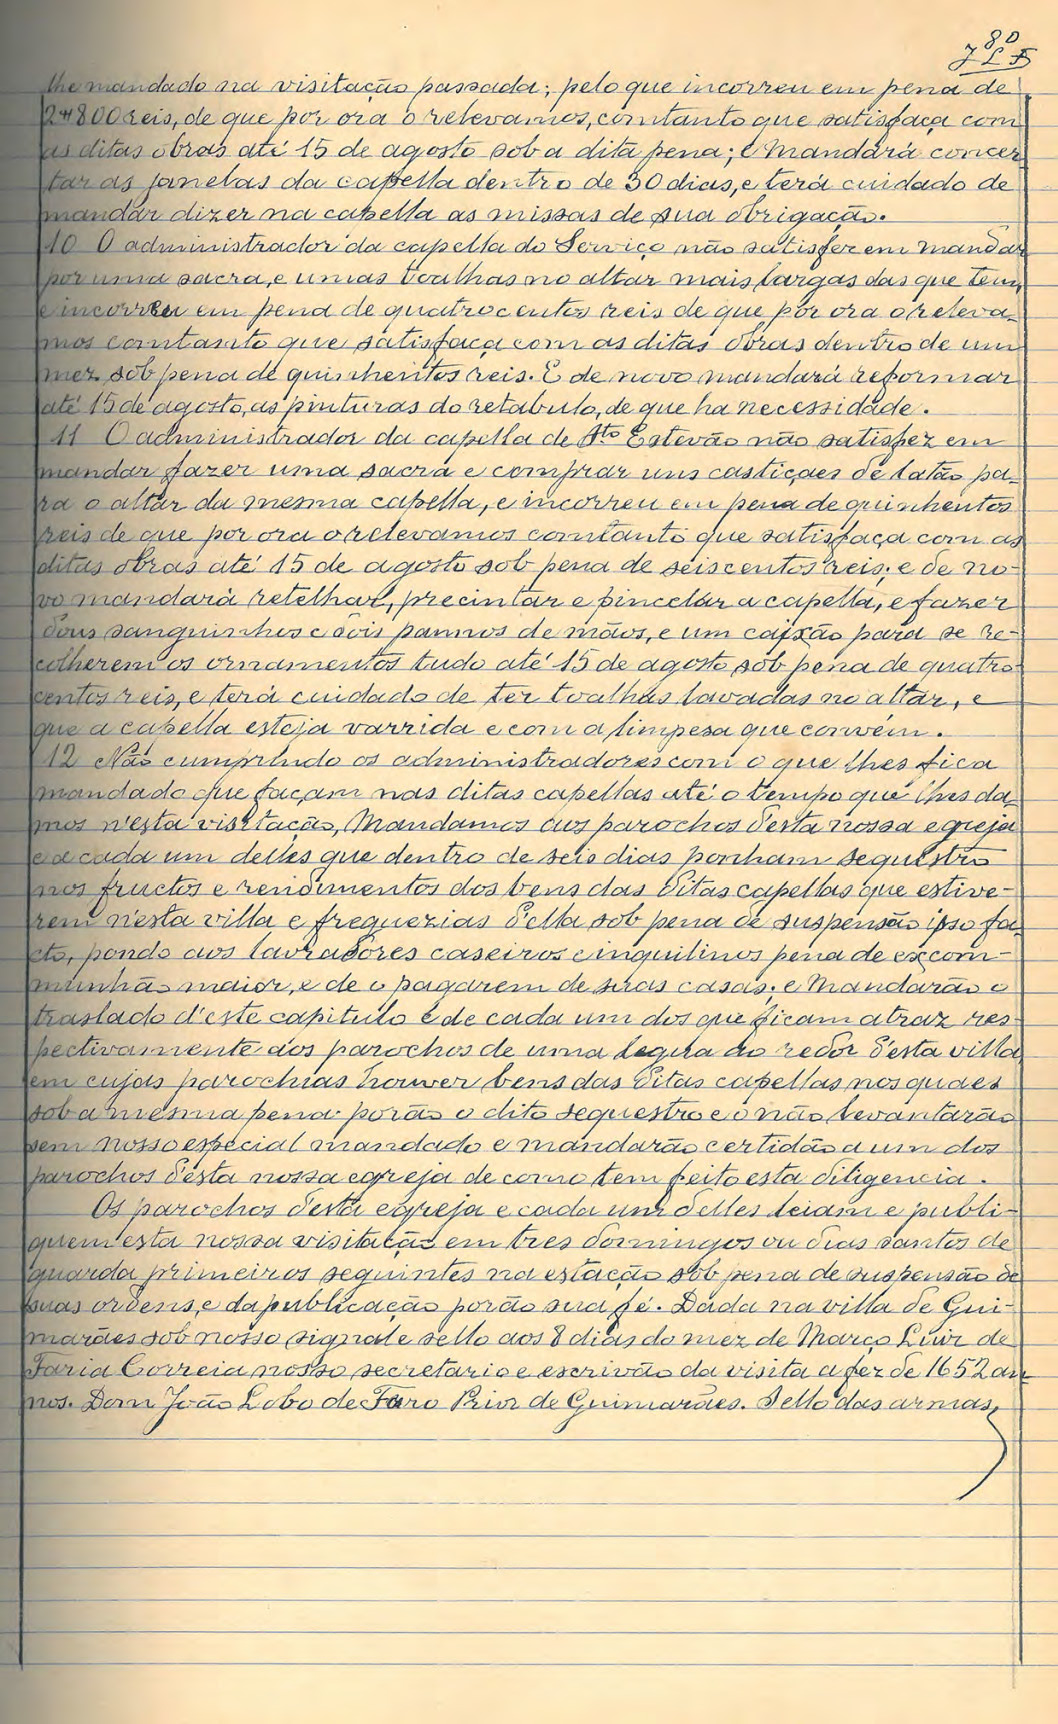 80
J L F
lhe mandado na visitação passada; pelo que incorreu em pena de
2#800 reis, de que por ora o relevamos, comtanto que satisfaça com
as ditas obras até 15 de agosto sob a dita pena; e mandará concer
tar as janelas da capella dentro de 30 dias, e terá cuidado de
mandar dizer na capella as missas de sua obrigação.
10 O administrador da capella do Serviço não satisfez em mandar
por uma sacra, e umas toalhas no altar mais largas das que tem,
e incorreu em pena de quatrocentos reis de que por ora o releva-
mos comtanto que satisfaça com as ditas obras dentro de um
mez sob pena de quinhentos reis. E de novo mandará reformar
até 15 de agosto, as pinturas do retabulo, de que ha necessidade.
11 O administrador da capella de Sto Estevão não satisfez em
mandar fazer uma sacra e comprar uns castiçaes de latão pa-
ra o altar da mesma capella, e incorreu em pena de quinhentos
reis de que por ora o relevamos comtanto que satisfaça com as
ditas obras até 15 de agosto sob pena de seiscentos reis; e de no-
vo mandará retelhar, precintar e pincelar a capella, e fazer
dous sanguinhos e dois pannos de mãos, e um caixão para se re-
colherem os ornamentos tudo até 15 de agosto sob pena de quatro-
centos reis, e terá cuidado de ter toalhas lavadas no altar, e
que a capella esteja varrida e com a limpesa que convém.
12 Não cumprindo os administradores com o que lhes fica
mandado que façam nas ditas capellas até o tempo que lhes da-
mos n'esta visitação, Mandamos aos parochos d'esta nossa egreja
e a cada um delles que dentro de seis dias ponham sequestro
nos fructos e rendimentos dos bens das ditas capellas que estive-
rem n'esta villa e freguezias d'ella sob pena de suspensão ipso fa-
cto, pondo aos lavradores caseiros e inquilinos pena de excom-
munhão maior, e de o pagarem de suas casas; e Mandarão o
traslado d'este capitulo e de cada um dos que ficam atraz res-
pectivamente aos parochos de uma legua ao redor d'esta villa
em cujas parochias houver bens das ditas capellas nos quaes
sob a mesma pena porão o dito sequestro e o não levantarão
sem nosso especial mandado e mandarão certidão a um dos
parochos d'esta nossa egreja de como tem feito esta diligencia.
Os parochos d'esta egreja e cada um d'elles leiam e publi-
quem esta nossa visitação em tres domingos ou dias santos de
guarda primeiros seguintes na estação sob pena de suspensão de
suas ordens, e da publicação porão sua fé. Dada na villa de Gui-
marães sob nosso signal e sello aos 8 dias do mez de Março Luiz de
Faria Correia nosso secretario e escrivão da visita a fez de 1652 an-
nos. Dom João Lobo de Faro Prior de Guimarães. Sello das armas.